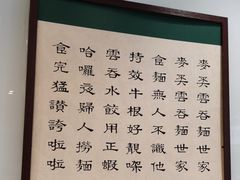 麥奀雲吞麵世家
麥奀雲吞麵世家
食麵無人不識他
持效牛根好靚㗎
雲吞水餃用正蝦
哈囉發歸人撈麵
食完猛讚誇啦啦